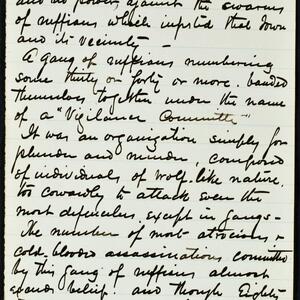 and no power against the swarms
of ruffians which infested that town
and its vicinity —
A gang of ruffians numbering
some thirty or forty or more, banded
themselves together under the name
of a "Vigilance Committee"
It was an organization simply for
plunder and murder, composed
of individuals of wolf-like nature,
too cowardly to attack even the
most defenceless, except in gangs—
The number of most atrocious &
cold-blooded assassinations committed
by this gang of ruffians almost
exceeds belief. and though Eighty